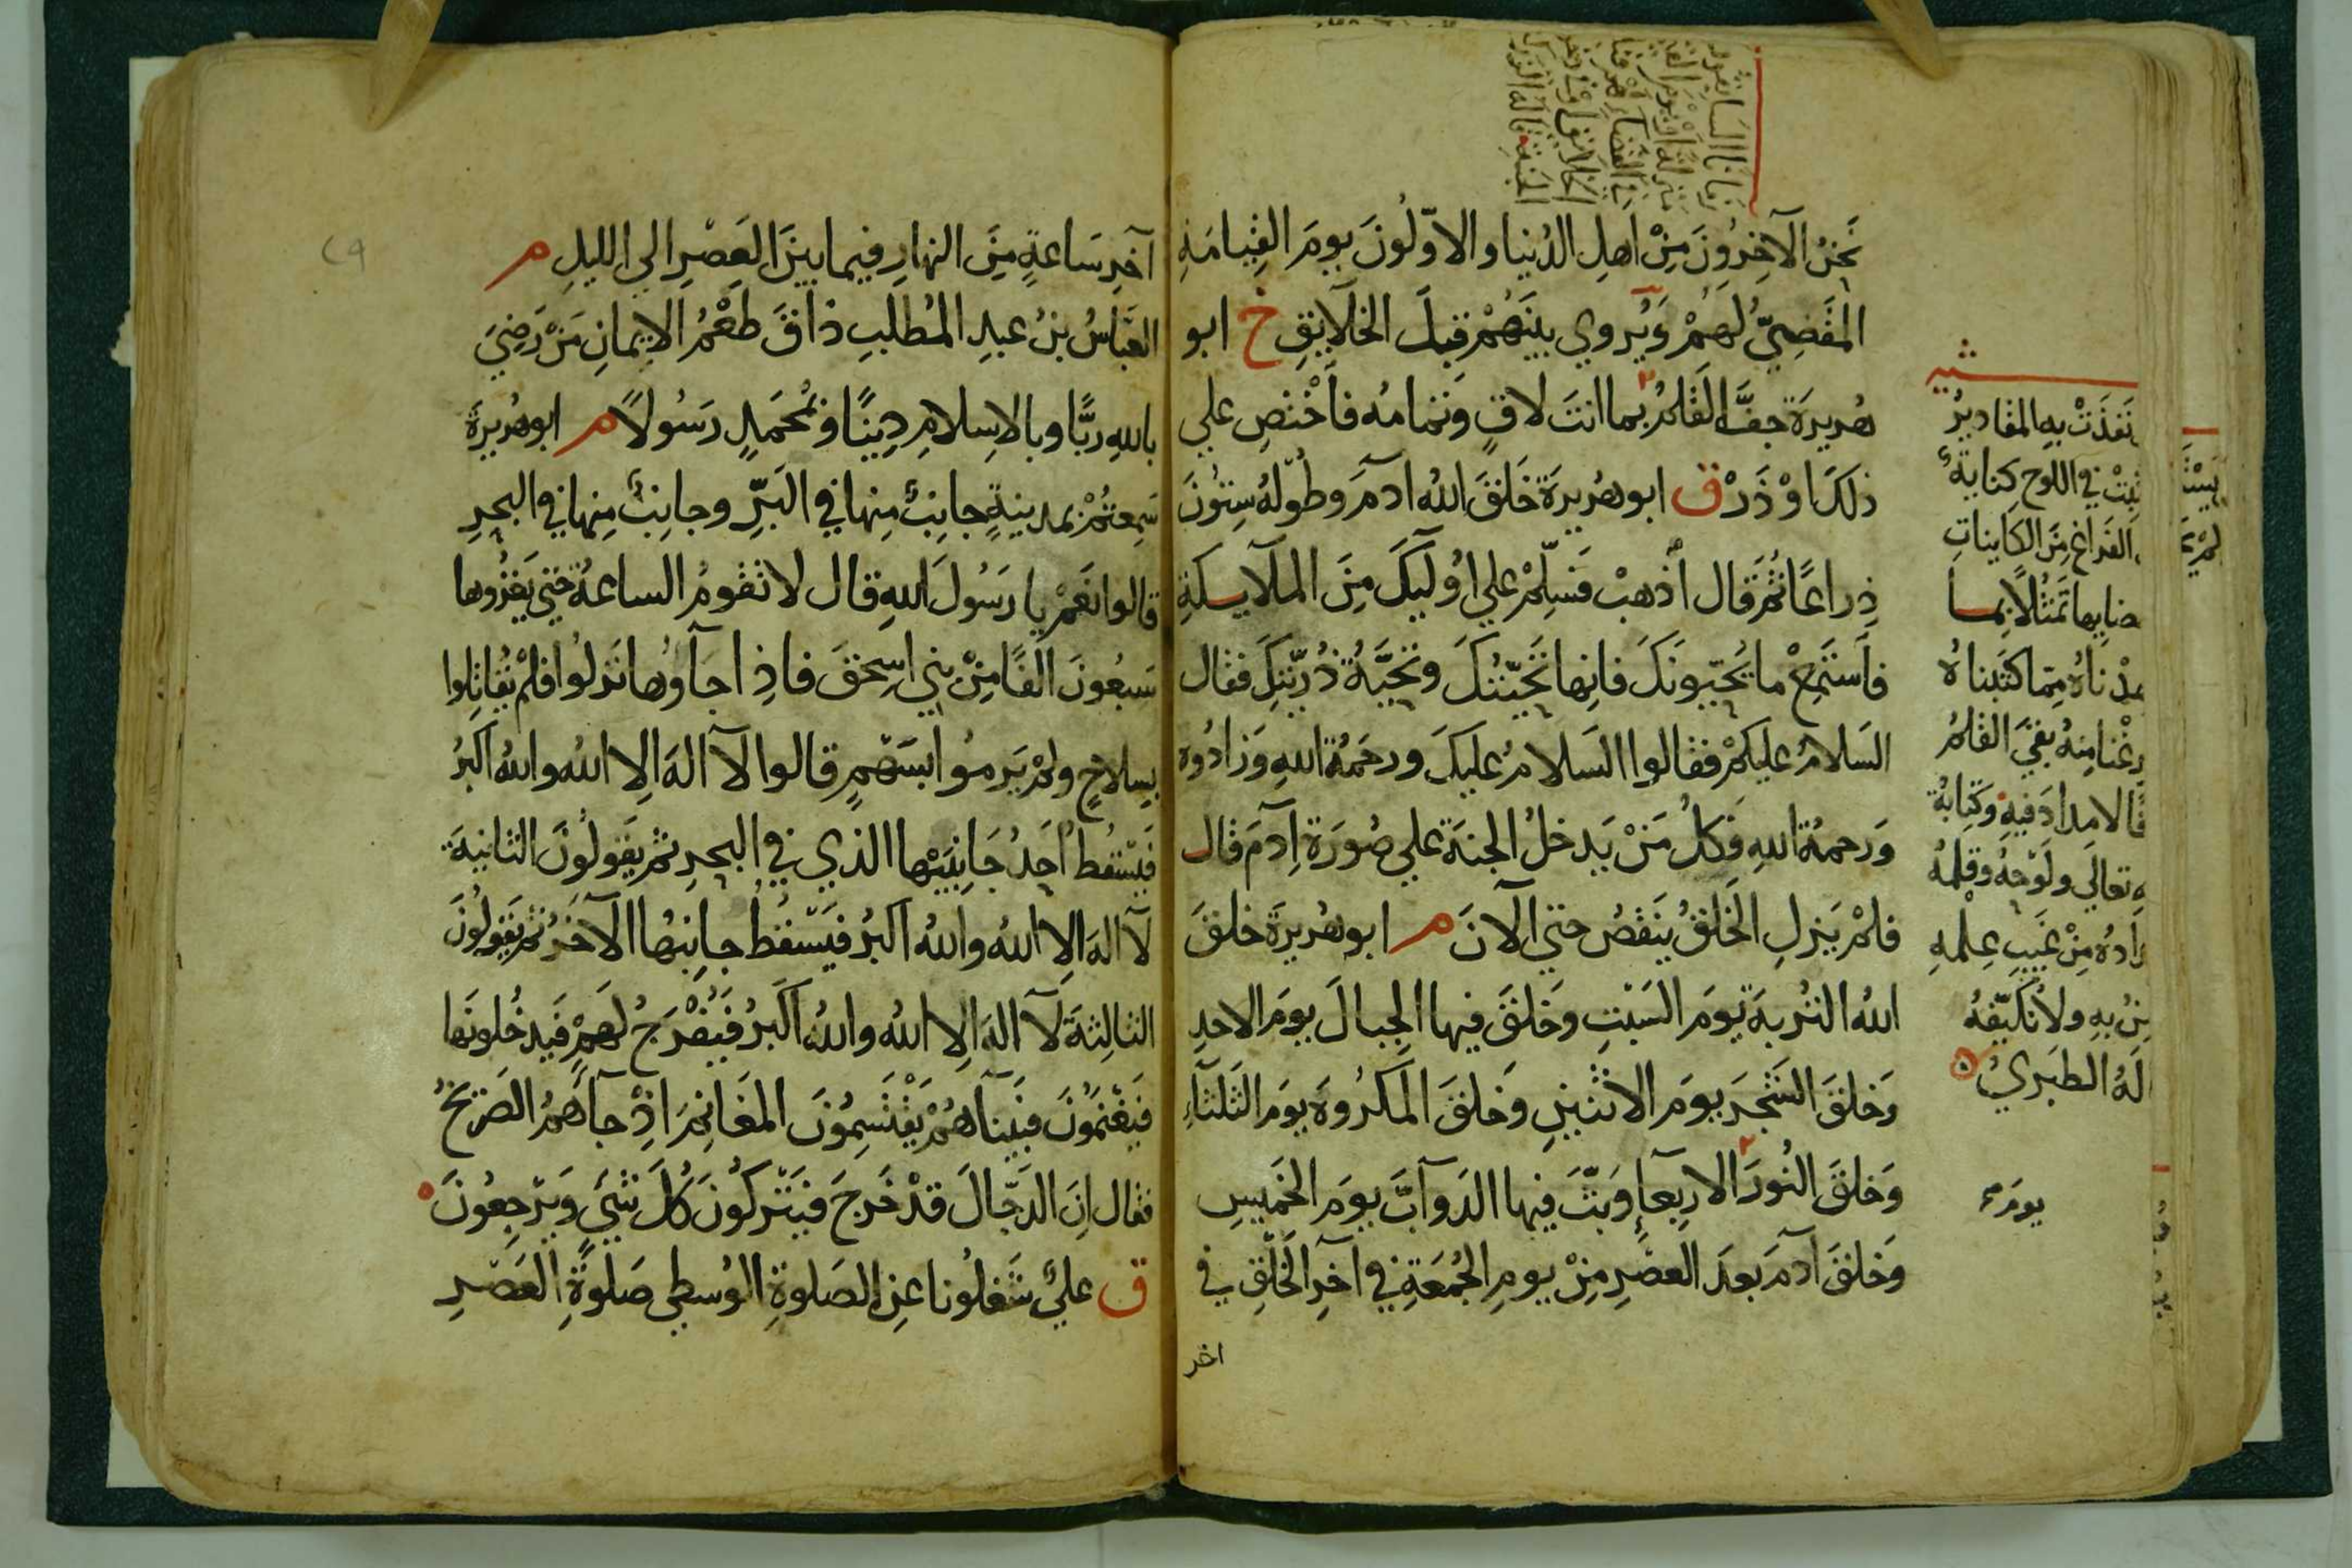 نَحْنُ الآخِرُونَ مِنْ اَهلِ الدُنيا والاوّلُونَ يومَ القِيامَةِ
المَقضِيُّ لَهُمْ وَيُروي بينَهُمْ قبلَ الخلآيقِ خ ابو
هُريرَة جفَّ القَلَمُ بما انتَ لاقٍ وتمامه فاَخْتَصِ علي
ذلكَ اوْ ذَرْ ق ابو هُريرَة خَلَقَ الله ادمَ وطُولُهُ سِتُونَ
ذِراعًا ثُمَّ قال اَذهبْ فَسَلِّمْ علي اوُليكَ مِنَ الملآيكةِ
فاَستَمِعْ ما يُحيّونَكَ فانِها تَحيّتُكَ وتَحيَّةُ ذُرّيّتِكَ فقال
السَلامُ عليكمْ فقالوا السَلامُ عليكَ ورحَمَةُ اللهِ وَزادُوه
وَرحمةُ اللهِ فكلُ مَنْ يَدخلُ الجنَةَ علي صُورَة آدمَ قال
فلمْ يَزلِ الخَلقُ يَنقصُ حتي الآنَ م ابو هُريرَة خلقَ
اللهُ التُربةَ يَومَ السَبْتِ وخَلقَ فيها الجبالَ يومَ الاحدِ
وَخلقَ الشَجَر يومَ الاثنينِ وَخلقَ المَكرُوهَ يومَ الثَلثآءِ
وَخلقَ النُورَ الاربِعآءِ وَبَثَّ فيها الدَوآبَّ يومَ الخَميسِ
وَخلقَ آدمَ بعدَ العصَرِ مِنْ يومِ الجُمعَةِ في آخرِ الخَلْقِ في
اخر
نَفذَتْ بهِ المقاديرُ
في اللوحِ كِتابةُ
الفَراغ مِنَ الكاينَاتِ
تَمثُلاً بما
ناهُ مِمّا كتَبناهُ
منهُ بقيَ القَلمُ
لا مدادَ فيهِ وكتِابةُ
تعالَي ولَوْحهُ وقلمُهُ
مِنْ غَيبِ عِلْمهِ
بهِ ولا نُكَيّفُهُ
الطبَريُ
يومَ
آخِرِ سَاعةٍ مِنَ النهارِ فيما بينَ العَصْرِ الي الليلِ م
العَباسُ بنُ عبدِ المُطلبِ ذاقَ طَعْمُ الايمانِ مَنْ رَضِيَ
باللهِ ربًّا وبالاِسلامِ دِينًا وبمُحَمَدٍ رَسُولاً م ابو هُريرَة
سَمِعتُمْ بمدينةٍ جانِبٌ مِنها في البَرِّ وجانِبٌ مِنها في البحرِ
قالوا نَعَمْ يا رَسُولَ اللهِ قال لا تقومُ الساعةُ حتي يَغزُوها
سَبعُونَ الفًا مِنْ بني اسِحقَ فاذِا جآوُها نَزلُوا فلمْ يُقاتِلوا
بسِلاحٍ ولمْ يَرمُوا بسَهْمٍ قالوا لآ الهَ الِا الله والله اكبرُ
فيَسْقُط اَحدُ جَانِبَيْها الذي في البحرِ ثم يَقولُونَ الثانيةَ
لآ الهَ الِا الله والله اكبرُ فيَسْقُطُ جانِبُها الآخَرُ ثم يَقولُونَ
الثالثِةَ لآ الهَ الِا الله والله اكبرُ فَيُفْرَجُ لَهمْ فَيدخُلونَها
فيَغْنمُونَ فبَينَا هُمْ يَقْتَسِمُونَ المغَانمَ اذِْ جآءَهُمُ الصَريخُ
فقال اِنَ الدَجّالَ قدْ خَرجَ فيَتْركُونَ كُلَ شَيءٍ وَيَرْجِعُونَ
ق عليٌ شَغلُونا عنِ الصَلوةِ الوُسطي صَلوةِ العَصْرِ